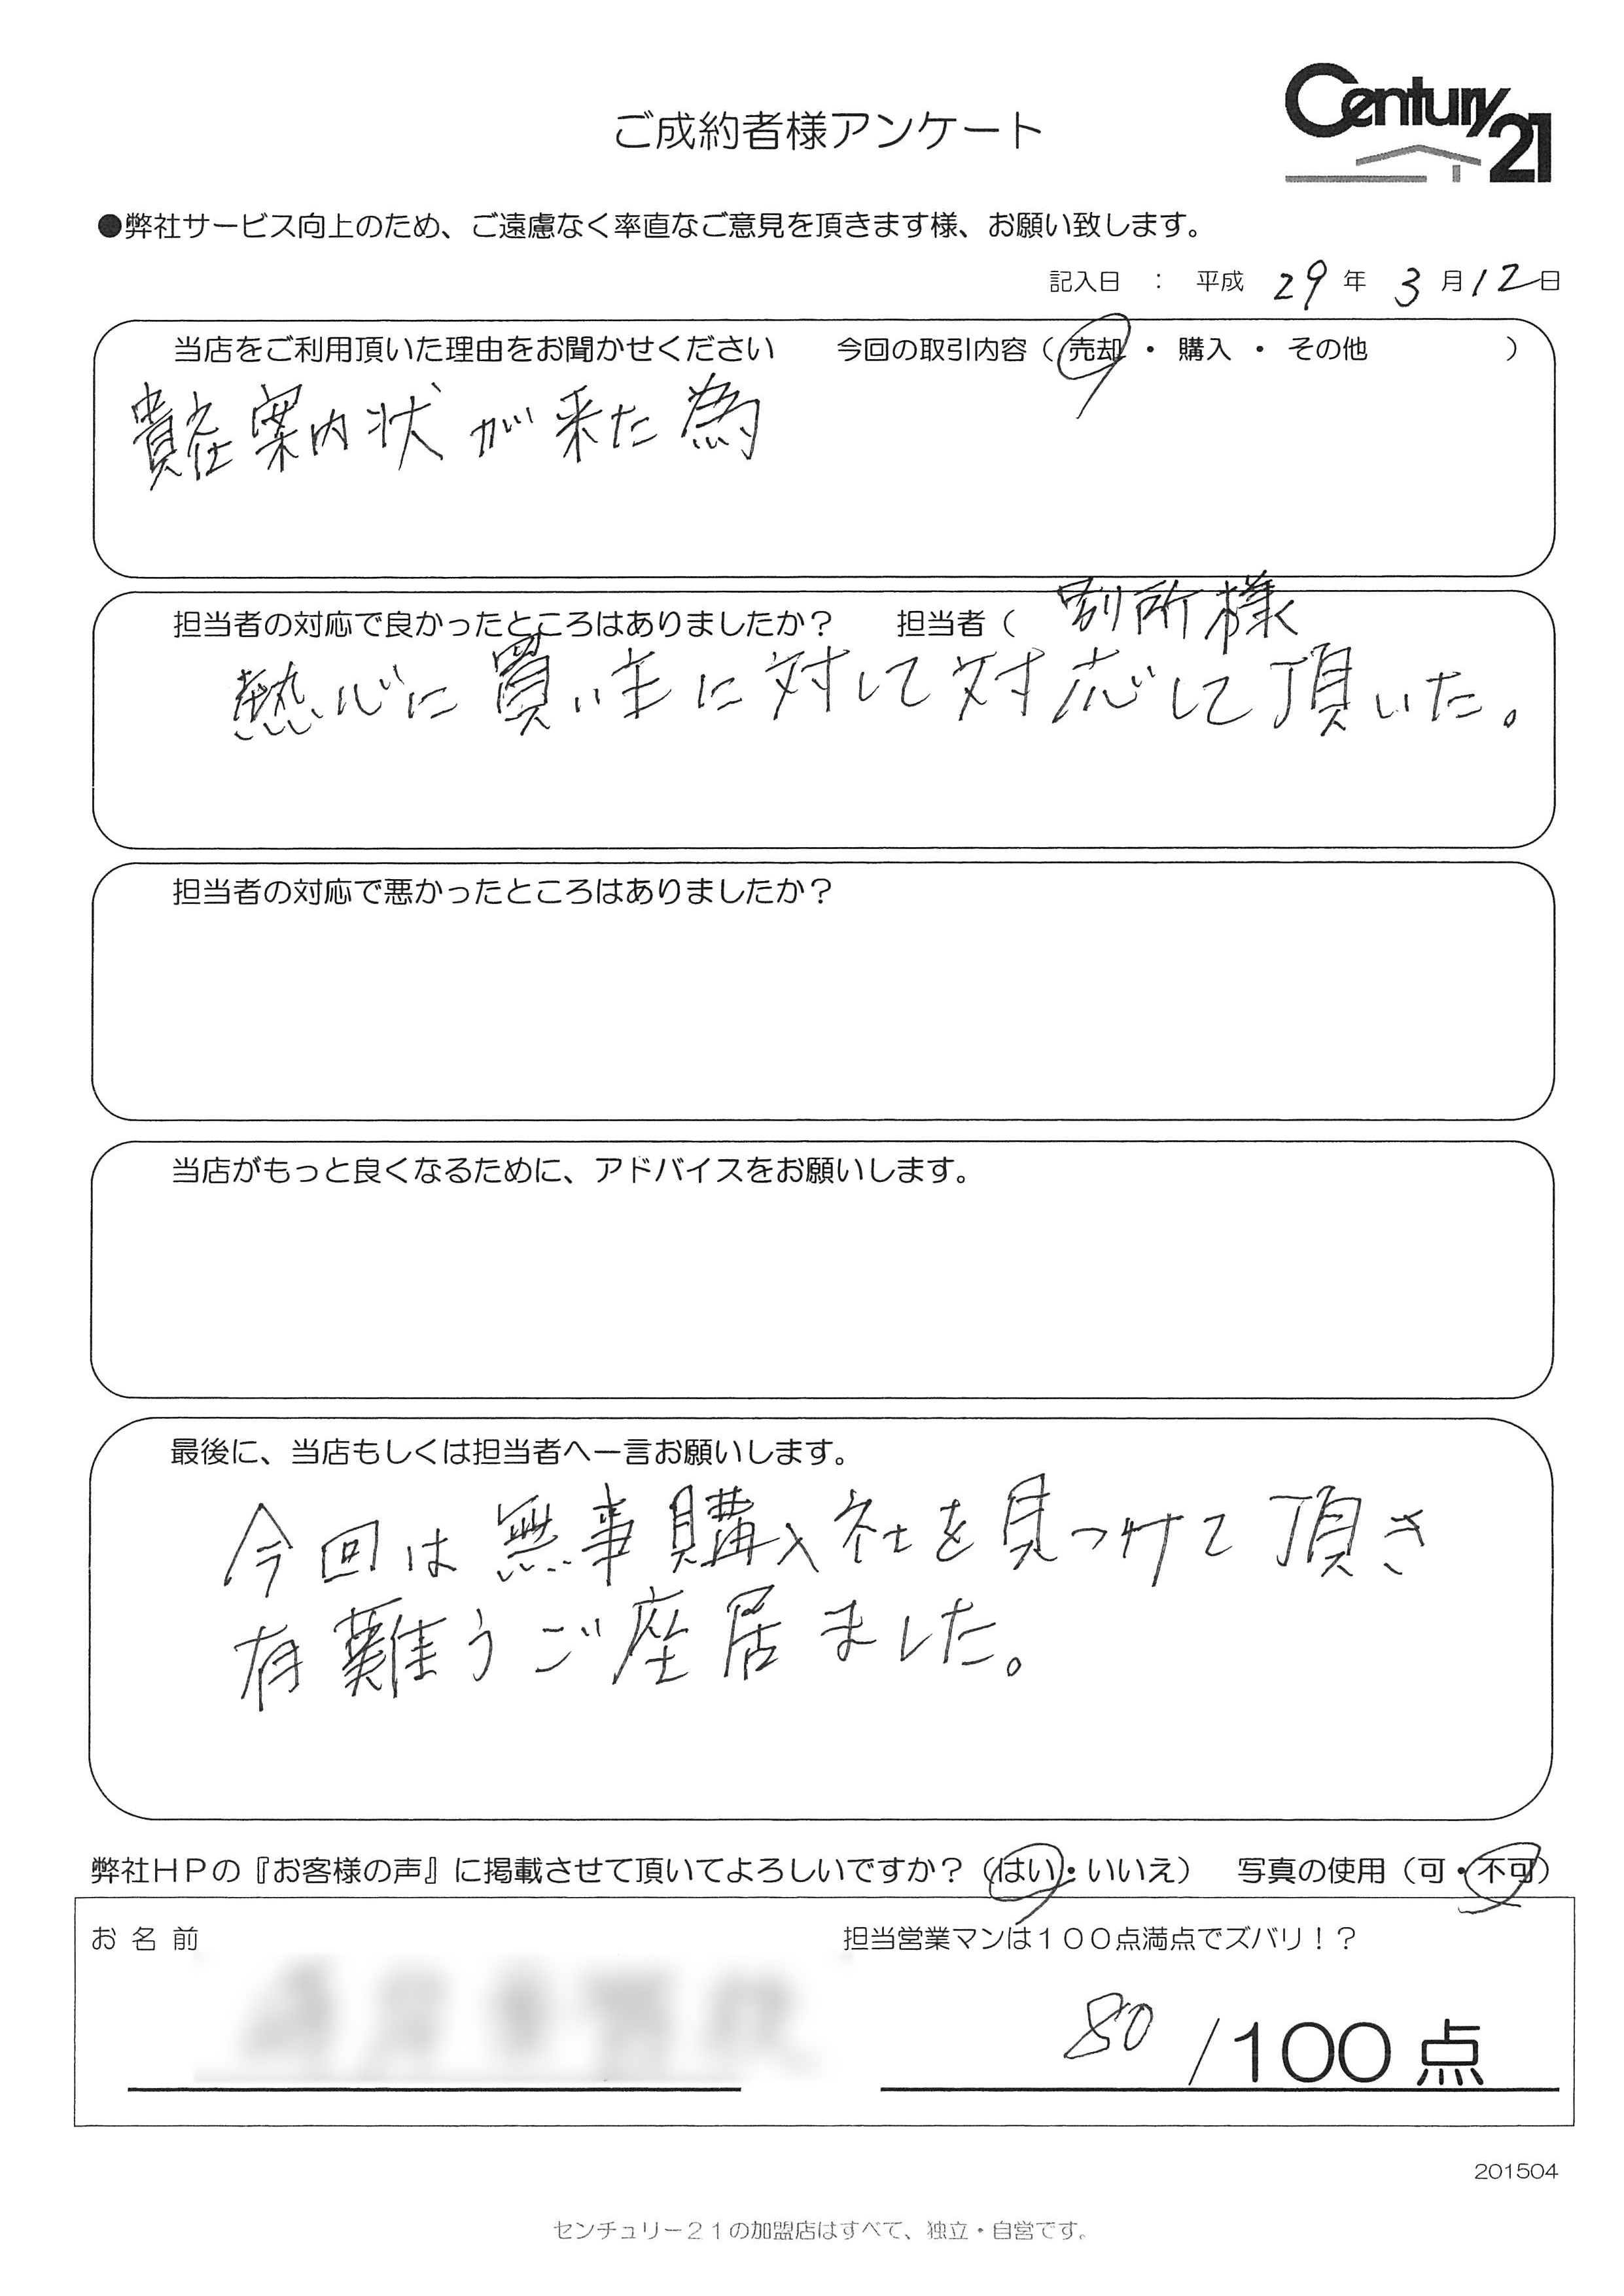 Century 21
ご成約者様アンケート
●弊社サービス向上のため、ご遠慮なく率直なご意見を頂きます様、お願い致します。
記入日 : 平成 29 年 3 月 12 日
当店をご利用頂いた理由をお聞かせください 今回の取引内容(売却・購入・その他 )
貴社案内状が来た為
担当者の対応で良かったところはありましたか? 担当者( 別所様
熱心に買い主に対して対応して頂いた。
担当者の対応で悪かったところはありましたか?
当店がもっと良くなるために、アドバイスをお願いします。
最後に、当店もしくは担当者へ一言お願いします。
今回は無事購入社を見つけて頂き
有難うご座居ました。
弊社HPの『お客様の声』に掲載させて頂いてよろしいですか?(はい・いいえ) 写真の使用(可・不可)
お名前 担当営業マンは100点満点でズバリ!?
80 /100点
201504
センチュリー21の加盟店はすべて、独立・自営です。